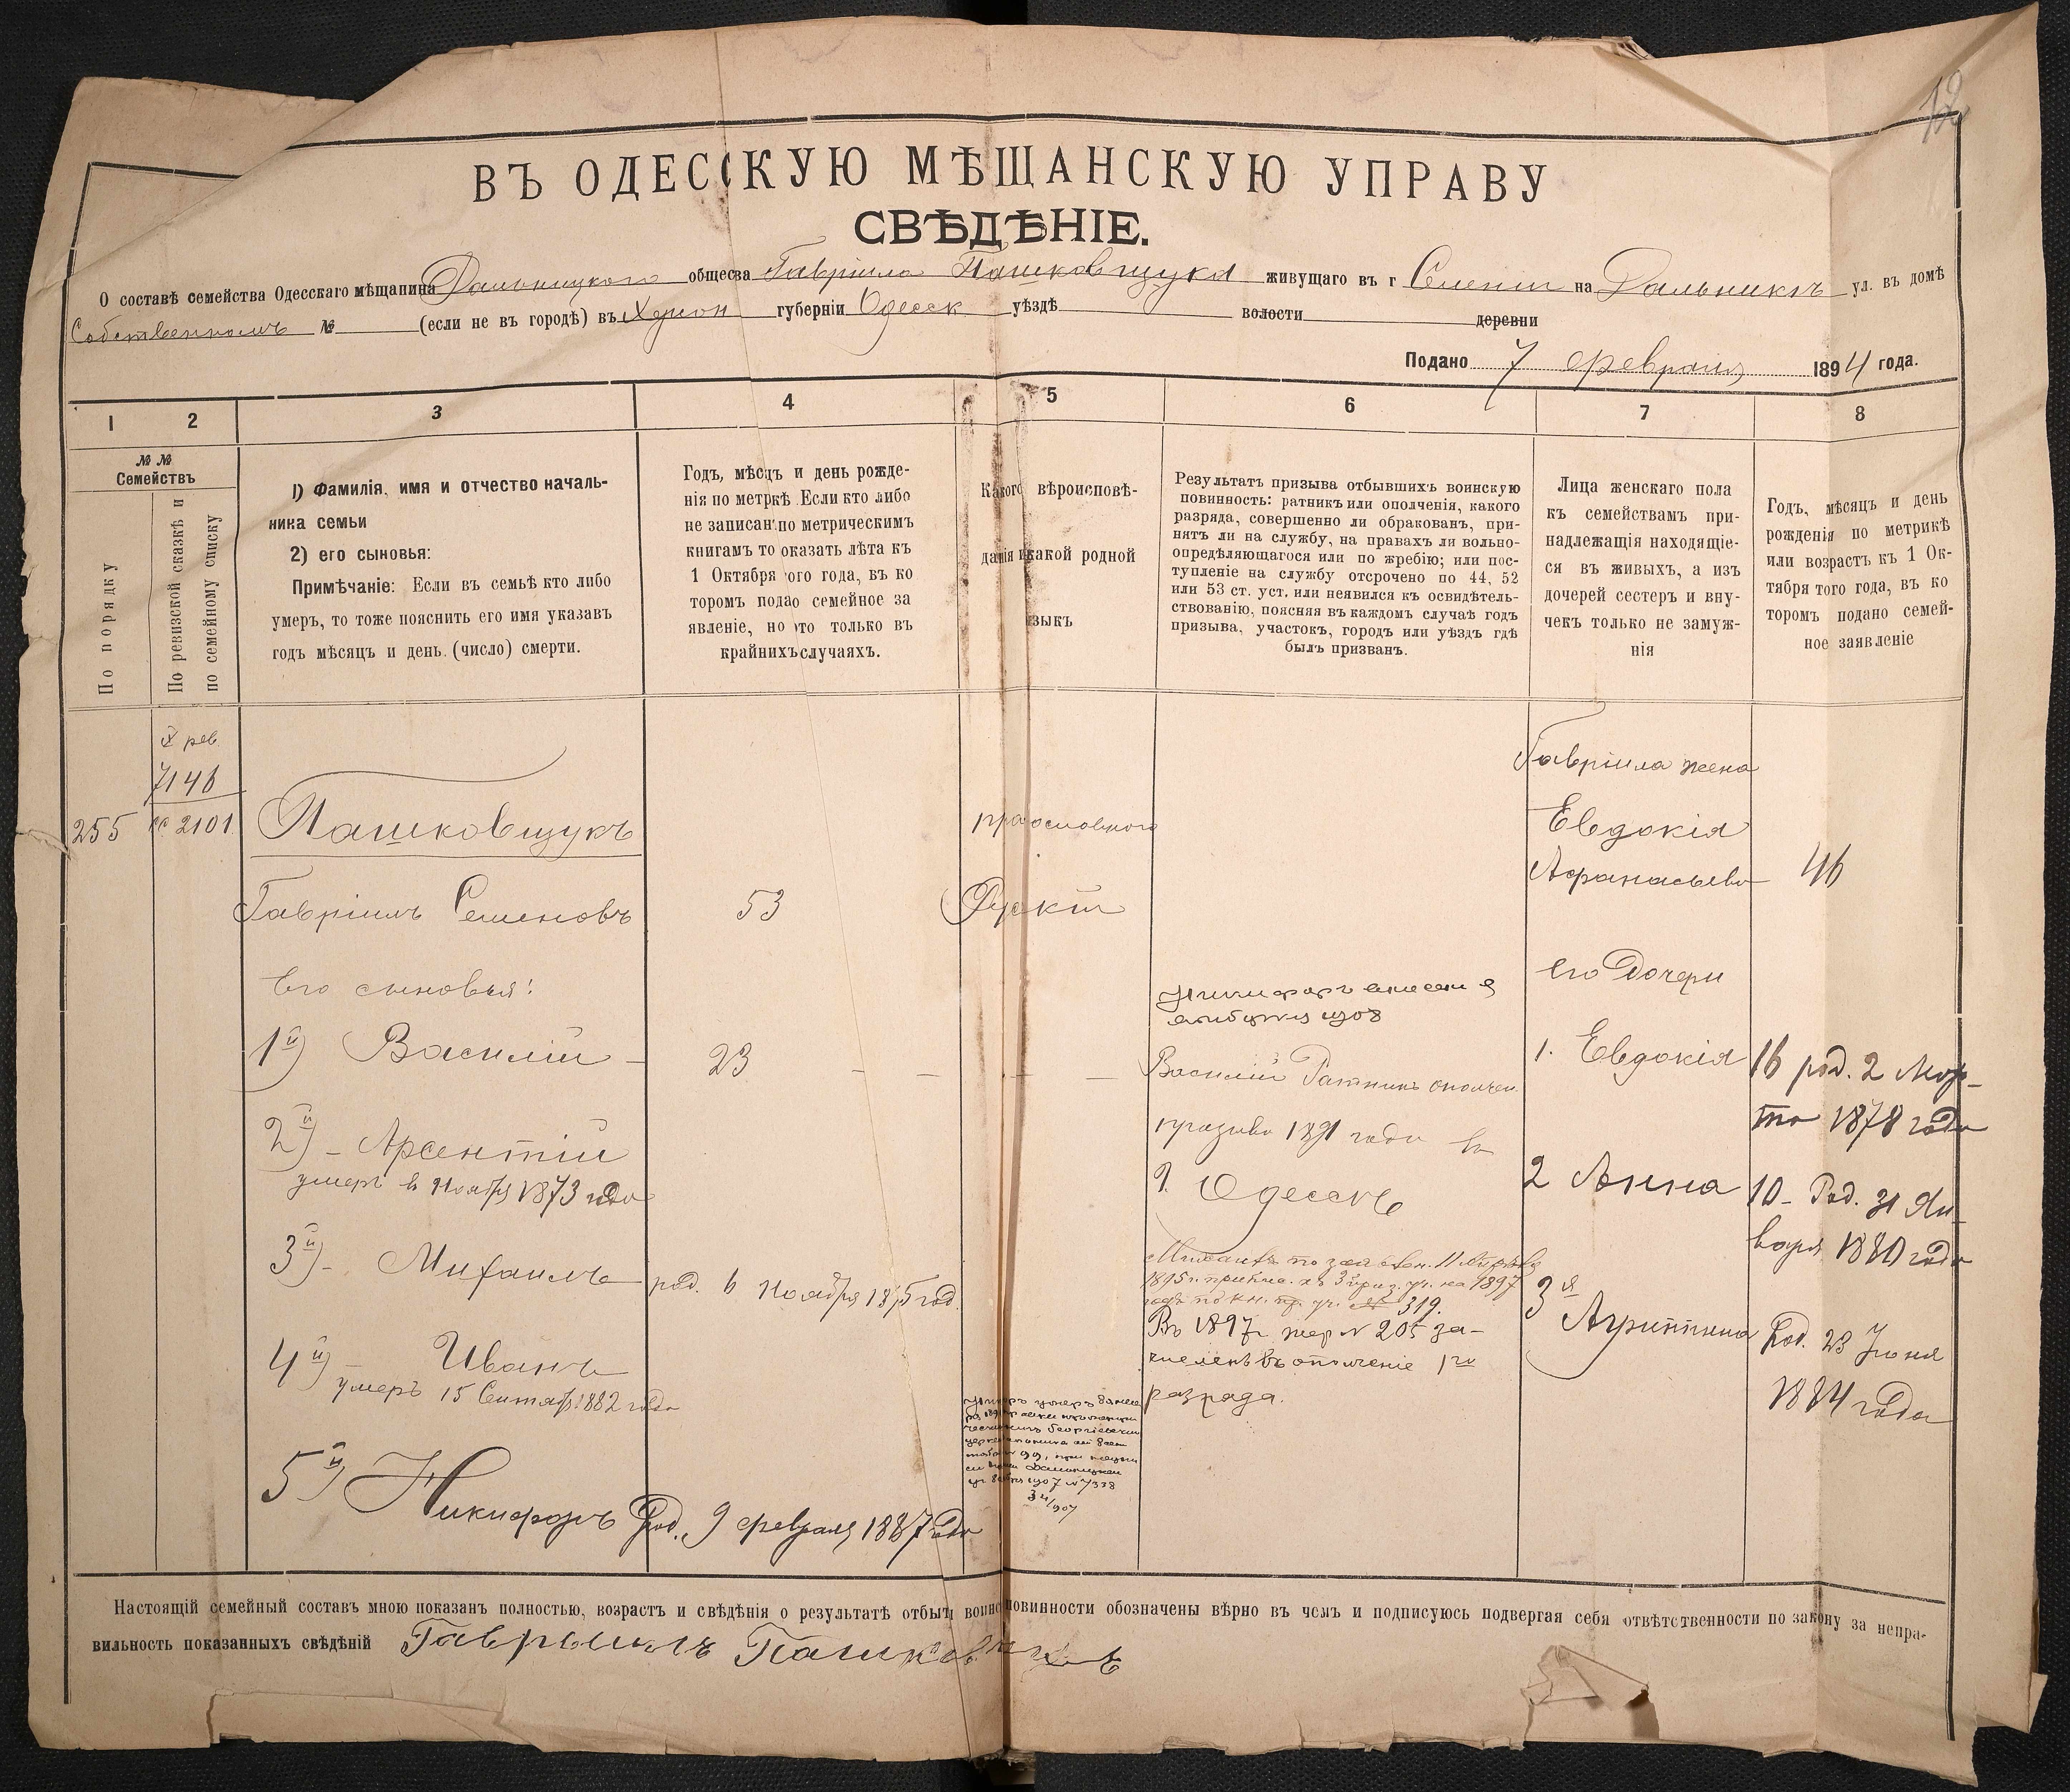 12
ВЪ ОДЕССКУЮ МѢЩАНСКУЮ УПРАВУ
СВѢДѢНІЕ.
О составѣ семейства Одесскаго мѣщанина Дальницкаго общесва Гавріила Пашковщука живущаго въ г Селеніи на Дальникѣ ул. въ домѣ
Собственномъ № (если не въ городѣ) въ Херсон губерніи Одесск уѣздѣ волости деревни
Подано 7 февраля 1894 года.
1 2 3 4 5 6 7 8
№ №
Семействъ
По порядку
По ревизской сказкѣ и
по семейному списку
1) Фамилія, имя и отчество началь-
ника семьи
2) его сыновья:
Примѣчаніе: Если въ семьѣ кто либо
умеръ, то тоже пояснить его имя указавъ
годъ мѣсяцъ и день (число) смерти.
Годъ, мѣсцъ и день рожде-
нія по метркѣ. Если кто либо
не записан по метрическимъ
книгамъ то оказать лѣта къ
1 Октября ого года, въ ко
торомъ подао семейное за
явленіе, но то только въ
крайнихъ случаяхъ.
Какого вѣроисповѣ-
данія и какой родной
зыкъ
Результатъ призыва отбывшихъ воинскую
повинность: ратникъ или ополченія, какого
разряда, совершенно ли обракованъ, при-
нятъ ли на службу, на правахъ ли вольно-
опредѣляющагося или по жребію; или пос-
тупленіе на службу отсрочено по 44, 52
или 53 ст. уст. или неявился къ освидѣтель-
ствованію, поясняя въ каждомъ случаѣ годъ
призыва, участокъ, городъ или уѣздъ гдѣ
былъ призванъ.
Лица женскаго пола
къ семействамъ при-
надлежащія находящіе-
ся въ живыхъ, а изъ
дочерей сестеръ и вну-
чекъ только не замуж-
нія
Годъ, мѣсяцъ и день
рожденія по метрикѣ
или возрастъ къ 1 Ок-
тября того года, въ ко
торомъ подано семей-
ное заявленіе
X рев
7146
255 сс 2101
Пашковщукъ
Гавріилъ Семеновъ 53
православного
Рускій
Его сыновья:
1й) Василій - 23 - - - -
2й) - Арсентій
умеръ в Ноября 1873 года
3й) - Михаилъ род. 6 Ноября 1875 год.
4й) - Иванъ
умеръ 15 Сентяб. 1882 года
5й) Никифоръ Род. 9 февраля 1887 года
Василій Ратникъ ополчен
призыва 1891 года в
г. Одессѣ
Михаилъ по заявлен. 11 Апрѣля
1895 г. припис. къ 3 приз. уч. на 1897
годъ по кн. пр. уч. № 319.
Въ 1897 г. жер № 205 за-
численъ въ ополченіе 1го
разряда.
Гавріила жена
Евдокія
Афанасьева 46
Его Дочери
1. Евдокія 16 род. 2 Мар-
та 1878 года
2 Анна 10 - Род. 31 Ян-
варя 1880 года
3я Агрипина Род. 23 Іюня
1884 года
Настоящій семейный составъ мною показанъ полностью, возрастъ и свѣдѣнія о результатѣ отбыт воинс повинности обозначены вѣрно въ чемъ и подписуюсь подвергая себя отвѣтственности по закону за непра-
вильность показанныхъ свѣдѣній Гаврыилъ Пашков